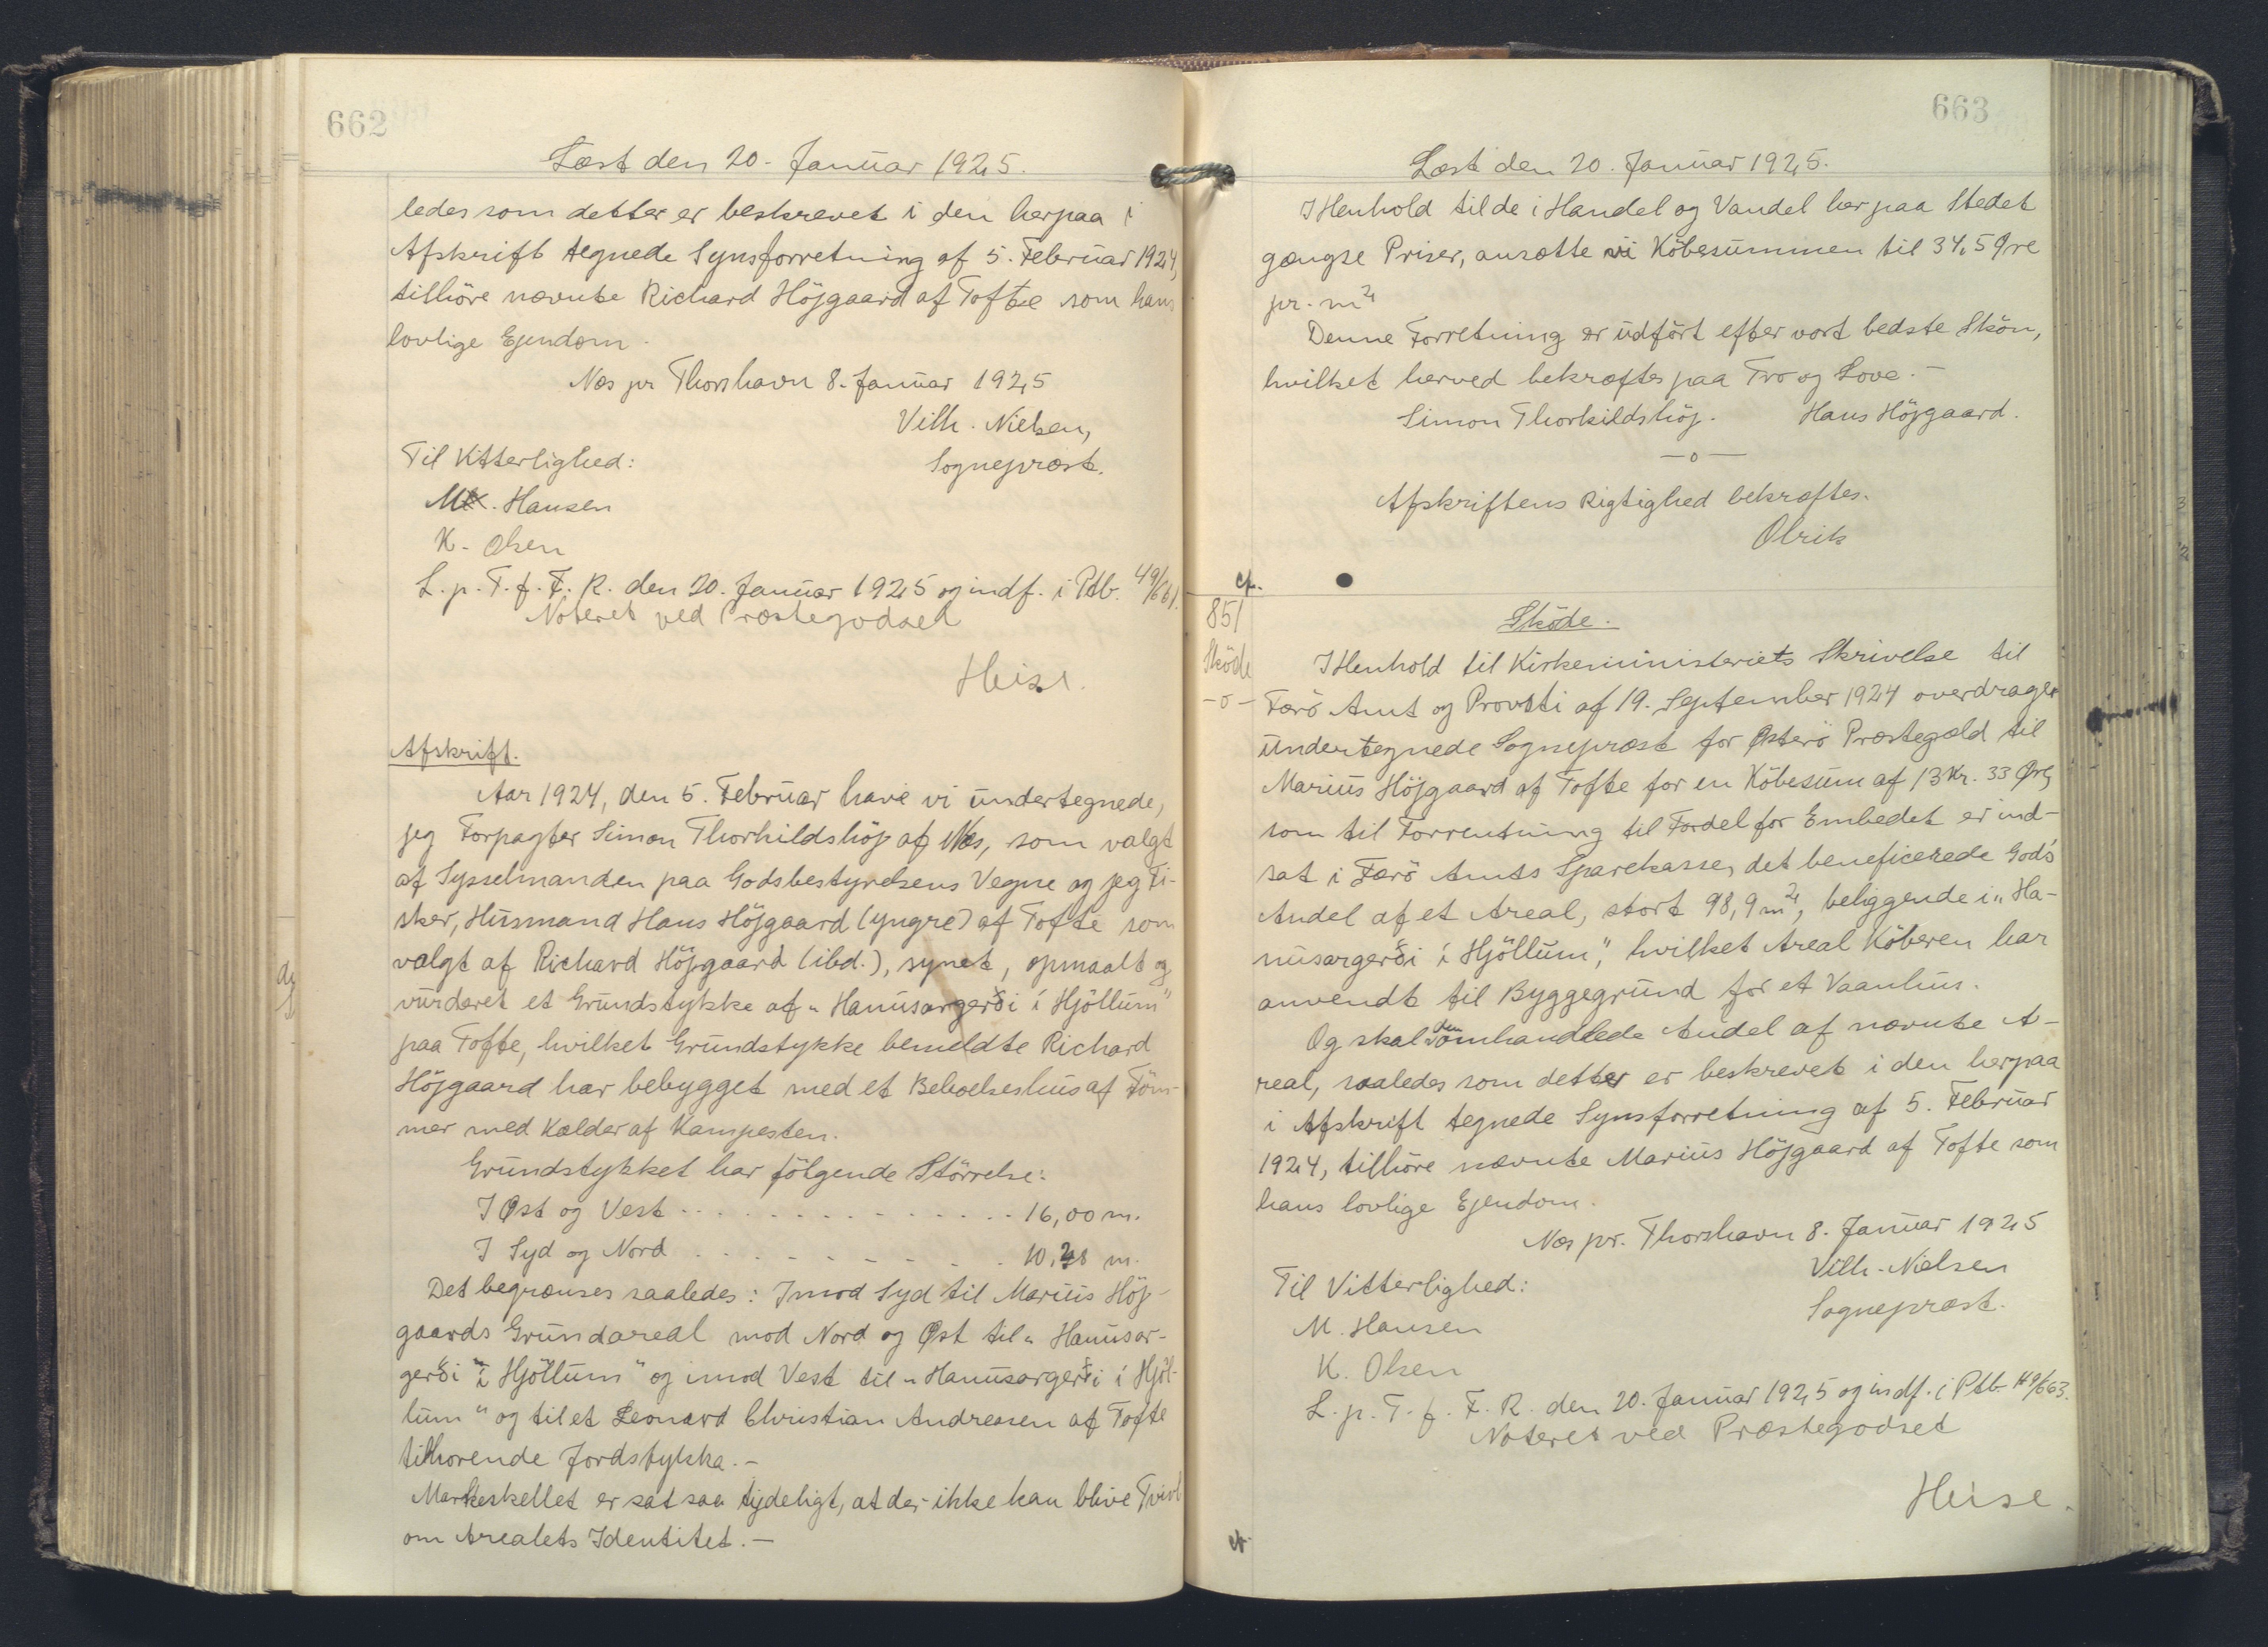 662
Læst den 20. Januar 1925.
ledes som dette er beskrevet i den herpaa i
Afskrift tegnede Synsforretning af 5. Februar 1924,
tilhöre nævnte Richard Höjgaard af Tofte som hans
lovlige Ejendom.
Næs pr Thorshavn 8. Januar 1925
Vilh. Nielsen,
Til Vitterlighed:
Sognepræst.
M. Hansen
K. Olsen
L. p. T. f. F. R. den 20. Januar 1925 og indf. i Ptb. 49/661.
Noteret ved Præstegodset
Heise.
Afskrift.
Aar 1924, den 5. Februar have vi undertegnede,
jeg Forpagter Simon Thorkildshöj af Næs, som valgt
af Sysselmanden paa Godsbestyrelsens Vegne og jeg Fi-
sker, Husmand Hans Höjgaard (yngre) af Tofte som
valgt af Richard Höjgaard (ibd.), synet, opmaalt og
vurderet et Grundstykke af „Hanusargerði í Hjöllum"
paa Tofte, hvilket Grundstykke bemeldte Richard
Höjgaard har bebygget med et Beboelseshus af Töm-
mer med Kælder af Kampesten.
Grundstykket har fölgende Störrelse:
I Øst og Vest . . . . . . . . . . . . . . . 16,00 m.
I Syd og Nord . . . . . . . . . . 10,28 m.
Det begrænses saaledes: Imod Syd til Marius Höj-
gaards Grundareal mod Nord og Øst til „Hanusar-
gerði í Hjöllum" og imod Vest til „Hanusargerði í Hjöl-
lum" og til et Leonard Christian Andreasen af Tofte
tilhörende Jordstykke. -
Markeskellet er sat saa tydeligt, at der ikke kan blive Tvivl
om Arealets Identitet. -
663
Læst den 20. Januar 1925.
I Henhold til de i Handel og Vandel her paa Stedet
gængse Priser, ansætte vi Köbesummen til 34,5 Øre
pr. m²
Denne Forretning er udfört efter vort bedste Skön,
hvilket herved bekræftes paa Tro og Love. -
Simon Thorkildshöj. Hans Höjgaard.
-o-
Afskriftens Rigtighed bekræftes.
Olrik
cf.
851
Sköde
-o-
Sköde.
I Henhold til Kirkeministeriets Skrivelse til
Færö Amt og Provsti af 19. September 1924 overdrager
undertegnede Sognepræst for Østerö Præstegæld til
Marius Höjgaard af Tofte for en Köbesum af 13 Kr. 33 Øre,
som til Forrentning til Fordel for Embedet er ind-
sat i Færö Amts Sparekasse, det beneficerede Gods's
Andel af et Areal, stort 98,9 m², beliggende i „Ha-
nusargerði í Hjöllum", hvilket Areal Köberen har
anvendt til Byggegrund for et Vaanhus.
Og skal den omhandlede Andel af nævnte A-
real, saaledes som dette er beskrevet i den herpaa
i Afskrift tegnede Synsforretning af 5. Februar
1924, tilhöre nævnte Marius Höjgaard af Tofte som
hans lovlige Ejendom.
Næs pr. Thorshavn 8. Januar 1925
Vilh. Nielsen
Til Vitterlighed:
Sognepræst.
M. Hansen
K. Olsen
L. p. T. f. F. R. den 20. Januar 1925 og indf. i Ptb. 49/663.
Noteret ved Præstegodset
Heise.
cf.